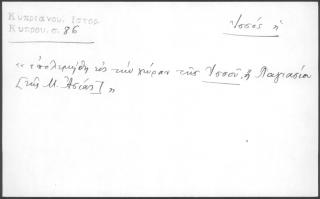 Κυπριανού. Ιστορ.
Κυπρου. σ. 86
Ὑσσός ἡ
« ὁ πολεμήθη εἰς τὴν χώραν τῆς Ὑσσοῦ, ἢ Παγιασίου
[τῆς Μ. Ἀσίας] »